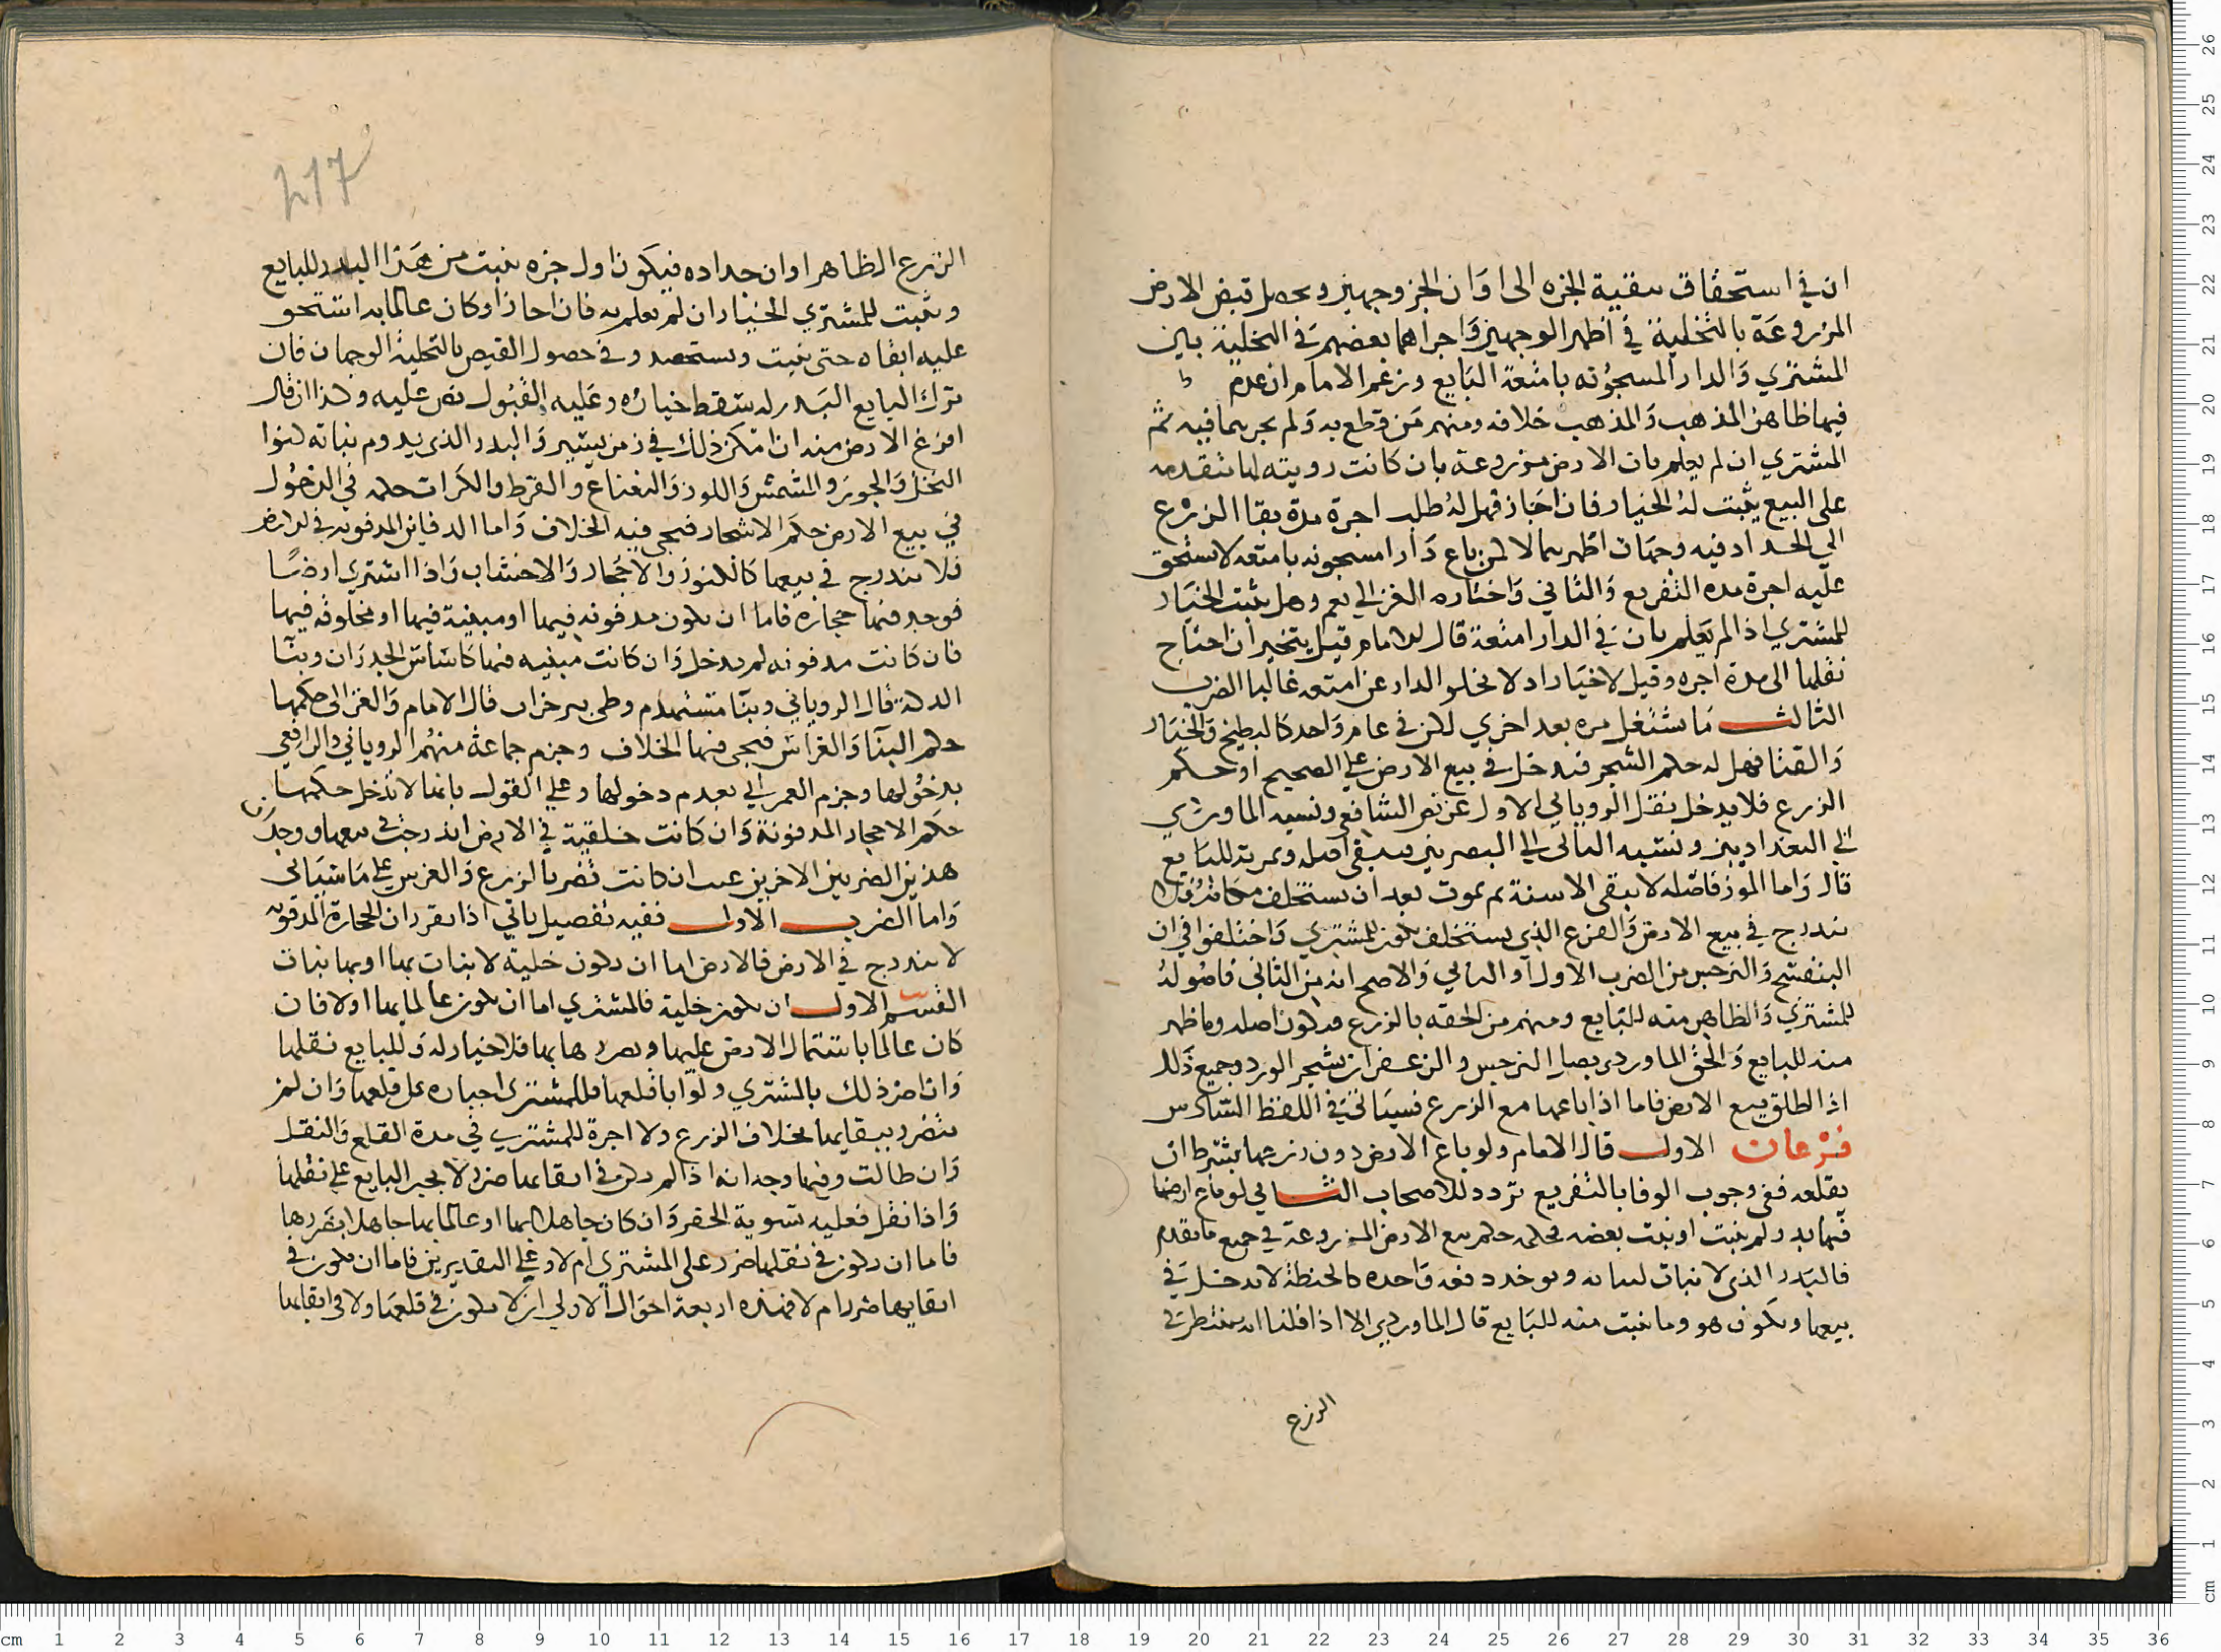 ان في استحقاق تبقية الجزه الى اوان الجز وجهين ويحصل قبض الارض
المزروعة بالتخلية في اظهر الوجهين واجراهما بعضهم في التخلية بين
المشتري والدار المسجونه بامتعة البايع وزعم الامام ان عدم
فيها ظاهر المذهب والمذهب خلافه ومنهم من قطع به ولم يجرهما فيه ثم
المشتري ان لم يعلم بان الارض مزروعة بان كانت رويته لها متقدمه
على البيع يثبت له الخيار فان اجاز فهل له طلب اجرة مدة بقا الزرع
الي الحداد فيه وجهان اظهرهما لا لمن باع دارا مسجونه بامتعه لا يستحق
عليه اجرة مده التفريع والثاني واختاره الغزالي نعم وهل يثبت الخيار
للمشتري اذا لم يعلم بان في الدار امتعة قال الامام قيل يتخير ان احتاج
نقلها الى مدة اجره وقيل لا خيار اذ لا يخلو الدار عن امتعه غالبا الضرب
الثالث ما يستغل مره بعد اخري لكن في عام واحد كالبطيخ والخيار
والقثا فهل له حكم الشجر فيدخل في بيع الارض على الصحيح او حكم
الزرع فلا يدخل نقل الروياني الاول عن نص الشافعي ونسبه الماوردي
الي البغداديين ونسبه الثاني الي البصريين فيبقى اصله وثمرته للبايع
قال واما الموز فاصله لا يبقى الا سنة ثم يموت بعد ان يستخلف مكانه فلا
يندرج في بيع الارض والفرع الذي يستخلف يكون للمشتري واختلفوا في ان
البنفسج والنرجس من الضرب الاول او الثاني والاصح انه من الثاني فاصوله
للمشتري والظاهر منه للبايع ومنهم من الحقه بالزرع فيكون اصله وما ظهر
منه للبايع والحق الماوردي بصل النرجس والزعفران شجر الورد وجميع ذلك
اذا اطلق بيع الارض فاما اذا باعها مع الزرع فسياتي في اللفظ السادس
فرعان الاول قال الامام ولو باع الارض دون زرعها بشرط ان
يقلعه ففي وجوب الوفا بالتفريع تردد للاصحاب الثاني لو باع ارضا
فيها بذر لم ينبت او نبت بعضه فحكمه حكم بيع الارض المزروعة في جميع ما تقدم
فالبذر الذي لا نبات لساقه ويوخذ دفعه واحده كالحنطة لا يدخل في
بيعها ويكون هو وما نبت منه للبايع قال الماوردي الا اذا قلنا انه ينتظر في
الزرع
217
الزرع الظاهر اوان حداده فيكون اول جزه نبتت من هذا البدر للبايع
ويثبت للمشتري الخيار ان لم يعلم به فان اجاز او كان عالما به استحق
عليه ابقاه حتى ينبت ويستحصد وفي حصول القبض بالتخلية الوجهان فان
ترك البايع البدر له سقط خياره وعليه القبول نص عليه وكذا ان قال
افرغ الارض منه ان امكن ذلك في زمن يسير والبدر الذي يدوم نباته كنوا
النخل والجوز والمشمش واللوز والنعناع والقرط والكراث حكمه في الدخول
في بيع الارض حكم الاشجار فيجي فيه الخلاف واما الدفاين المدفونه في الارض
فلا يندرج في بيعها كالكنوز والاحجار والاخشاب واذا اشتري ارضا
فوجد فيها حجاره فاما ان يكون مدفونه فيها او مبنية فيها او مخلوقه فيها
فان كانت مدفونه لم يدخل وان كانت مبنيه فيها كاساس الجدران وبنا
الدكة قال الروياني وبنا منهدم وطي بير خراب قال الامام والغزالي حكمها
حكم البنا والغراس فيجي فيها الخلاف وجزم جماعة منهم الروياني والرافعي
بدخولها وجزم العمراني بعدم دخولها وعلي القول بانها لا تدخل حكمها
حكم الاحجار المدفونة وان كانت خلقية في الارض اندرجت في بيعها ووجد
هذين الضربين الاخرين عيب ان كانت تضر بالزرع والغرس على ما سياتي
واما الضرب الاول ففيه تفصيل ياتي اذا تقرر ان الحجارة المدفونه
لا يندرج في الارض فالارض اما ان تكون خلية لا نبات بها او بها نبات
القسم الاول ان يكون خلية فالمشتري اما ان يكون عالما بها او لا فان
كان عالما باشتمال الارض عليها وبضررها بها فلا خيار له وللبايع نقلها
وان اضر ذلك بالمشتري ولو ابا قلعها فللمشتري اجباره على قلعها وان لم
يتضرر ببقايها بخلاف الزرع ولا اجرة للمشتري في مدة القلع والنقل
وان طالت وفيها وجه انه اذا لم يكن في ابقايها ضرر لا يجبر البايع على نقلها
واذا نقل فعليه تسوية الحفر وان كان جاهلا بها او عالما بها جاهلا بضررها
فاما ان يكون في نقلها ضرر على المشتري ام لا وعلي التقديرين فاما ان يكون في
ابقايها ضرر ام لا فهذه اربعة احوال الاولي ان لا يكون في قلعها ولا في ابقايها